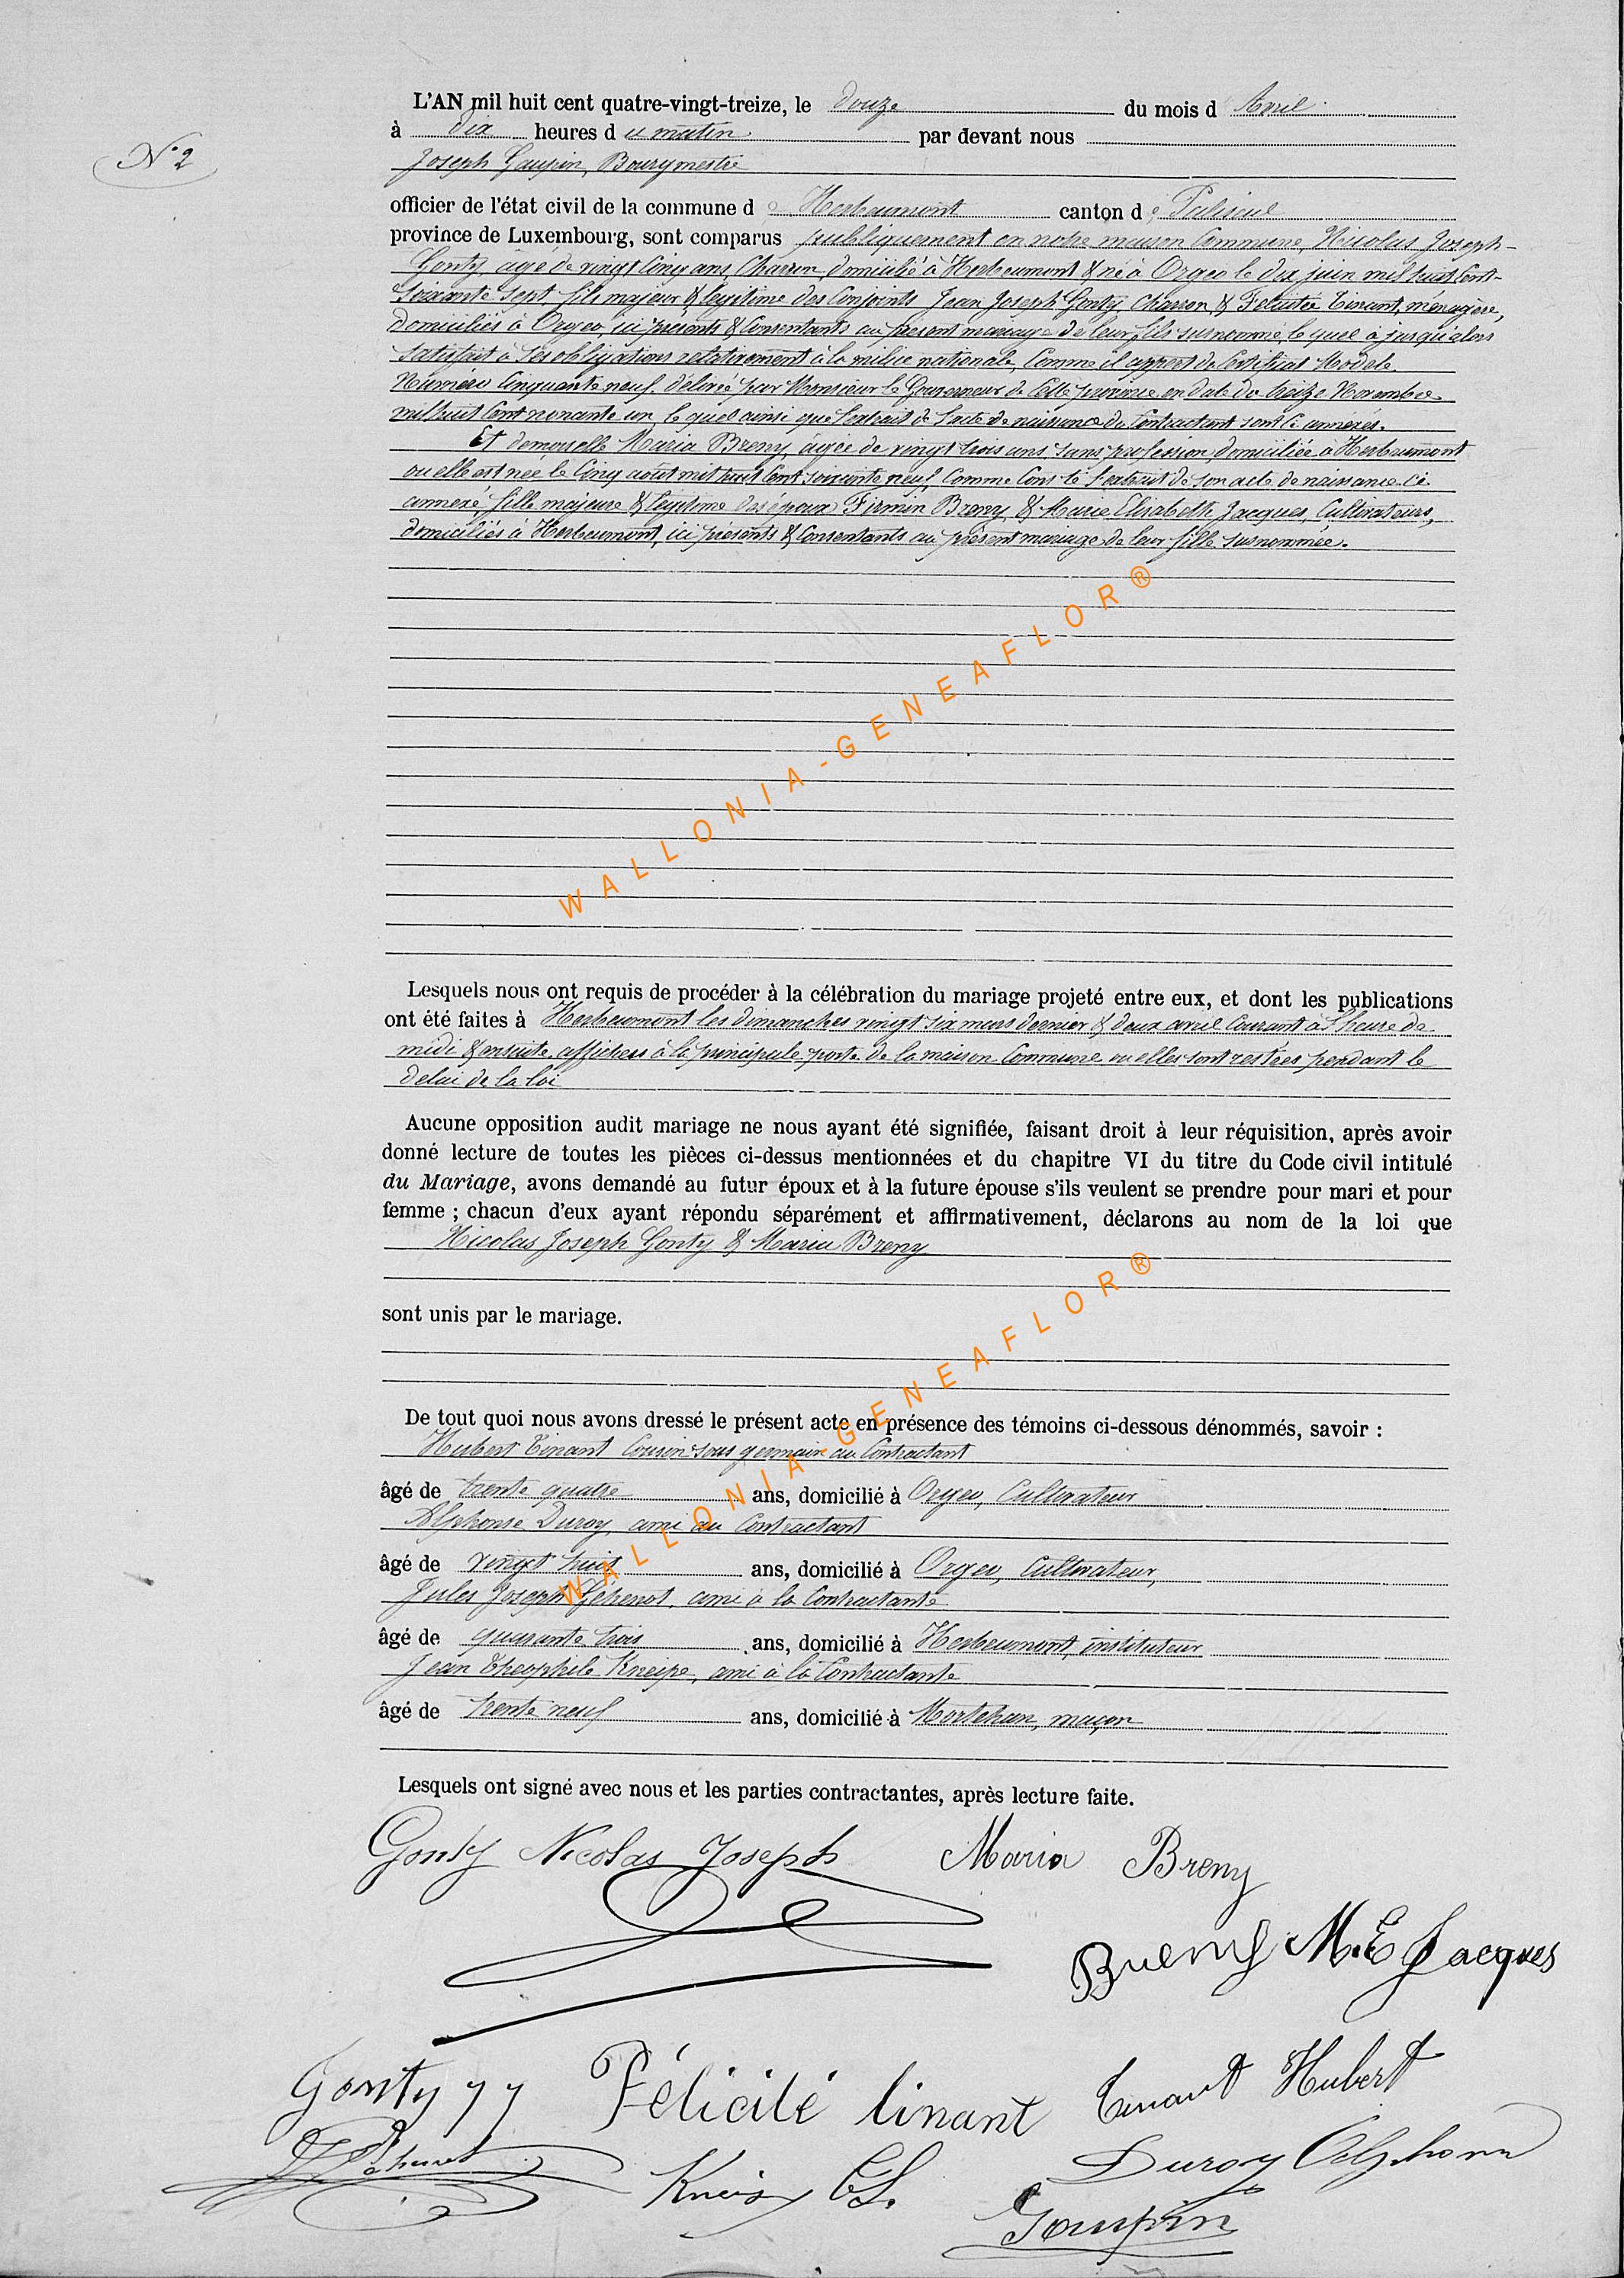 N° 2
L'AN mil huit cent quatre-vingt-treize, le douze du mois d Avril
à dix heures d u matin par devant nous
Joseph Goupin, Bourgmestre
officier de l'état civil de la commune d e Herbeumont canton d e Paliseul
province de Luxembourg, sont comparus publiquement en notre maison Commune, Nicolas Joseph
Gonty, agé de vingt Cinq ans, Charron domicilié à Herbeumont & né à Orgeo le dix juin mil huit Cent
Soixante Sept, fils majeur & légitime des Conjoints Jean Joseph Gonty, charron, & Félicité Tinant, ménagère,
domiciliés à Orgeo, ici présents & Consentants au présent mariage de leur fils susnommé, le quel à jusqu'alors
satisfait à ses obligations relativement à la milice nationale, Comme il appert du Certificat Modèle
Numéro Cinquante neuf, délivré par Monsieur le Gouverneur de Cette province en date du treize Novembre
mil huit Cent nonante un, le quel ainsi que l'extrait de l'acte de naissance du Contractant sont Ci annexés.
Et demoiselle Maria Breny, âgée de vingt trois ans, sans profession, domiciliée à Herbeumont
ou elle est née le Cinq août mil huit Cent soixante neuf, Comme Conste l'extrait de son acte de naissance Ci
annexé, fille majeure & légitime des époux Firmin Breny, & Marie Elisabeth Jacques, Cultivateurs,
domiciliés à Herbeumont, ici présents & Consentants au présent mariage de leur fille susnommée.
WALLONIA-GENEAFLOR®
Lesquels nous ont requis de procéder à la célébration du mariage projeté entre eux, et dont les publications
ont été faites à Herbeumont les dimanches vingt six mars dernier & deux avril Courant à l'heure de
midi & ensuite affichées à la principale porte de la maison Commune ou elles sont restées pendant le
délai de la loi
Aucune opposition audit mariage ne nous ayant été signifiée, faisant droit à leur réquisition, après avoir
donné lecture de toutes les pièces ci-dessus mentionnées et du chapitre VI du titre du Code civil intitulé
du Mariage, avons demandé au futur époux et à la future épouse s'ils veulent se prendre pour mari et pour
femme ; chacun d'eux ayant répondu séparément et affirmativement, déclarons au nom de la loi que
Nicolas Joseph Gonty & Maria Breny
sont unis par le mariage.
WALLONIA-GENEAFLOR®
De tout quoi nous avons dressé le présent acte en présence des témoins ci-dessous dénommés, savoir :
Hubert Tinant Cousin sous germain au Contractant
âgé de trente quatre ans, domicilié à Orgeo, Cultivateur
Alphonse Duroy, ami au Contractant
âgé de vingt huit ans, domicilié à Orgeo, Cultivateur,
Jules Joseph Géhenot, ami à la Contractante
âgé de quarante trois ans, domicilié à Herbeumont, instituteur
Jean Théophile Kneipe, ami à la Contractante
âgé de trente neuf ans, domicilié à Mortehan, maçon
Lesquels ont signé avec nous et les parties contractantes, après lecture faite.
Gonty Nicolas Joseph Maria Breny
Breny M.E Jacques
Gonty J J Félicité tinant Tinant Hubert
Duroy Alphonse
Goupin